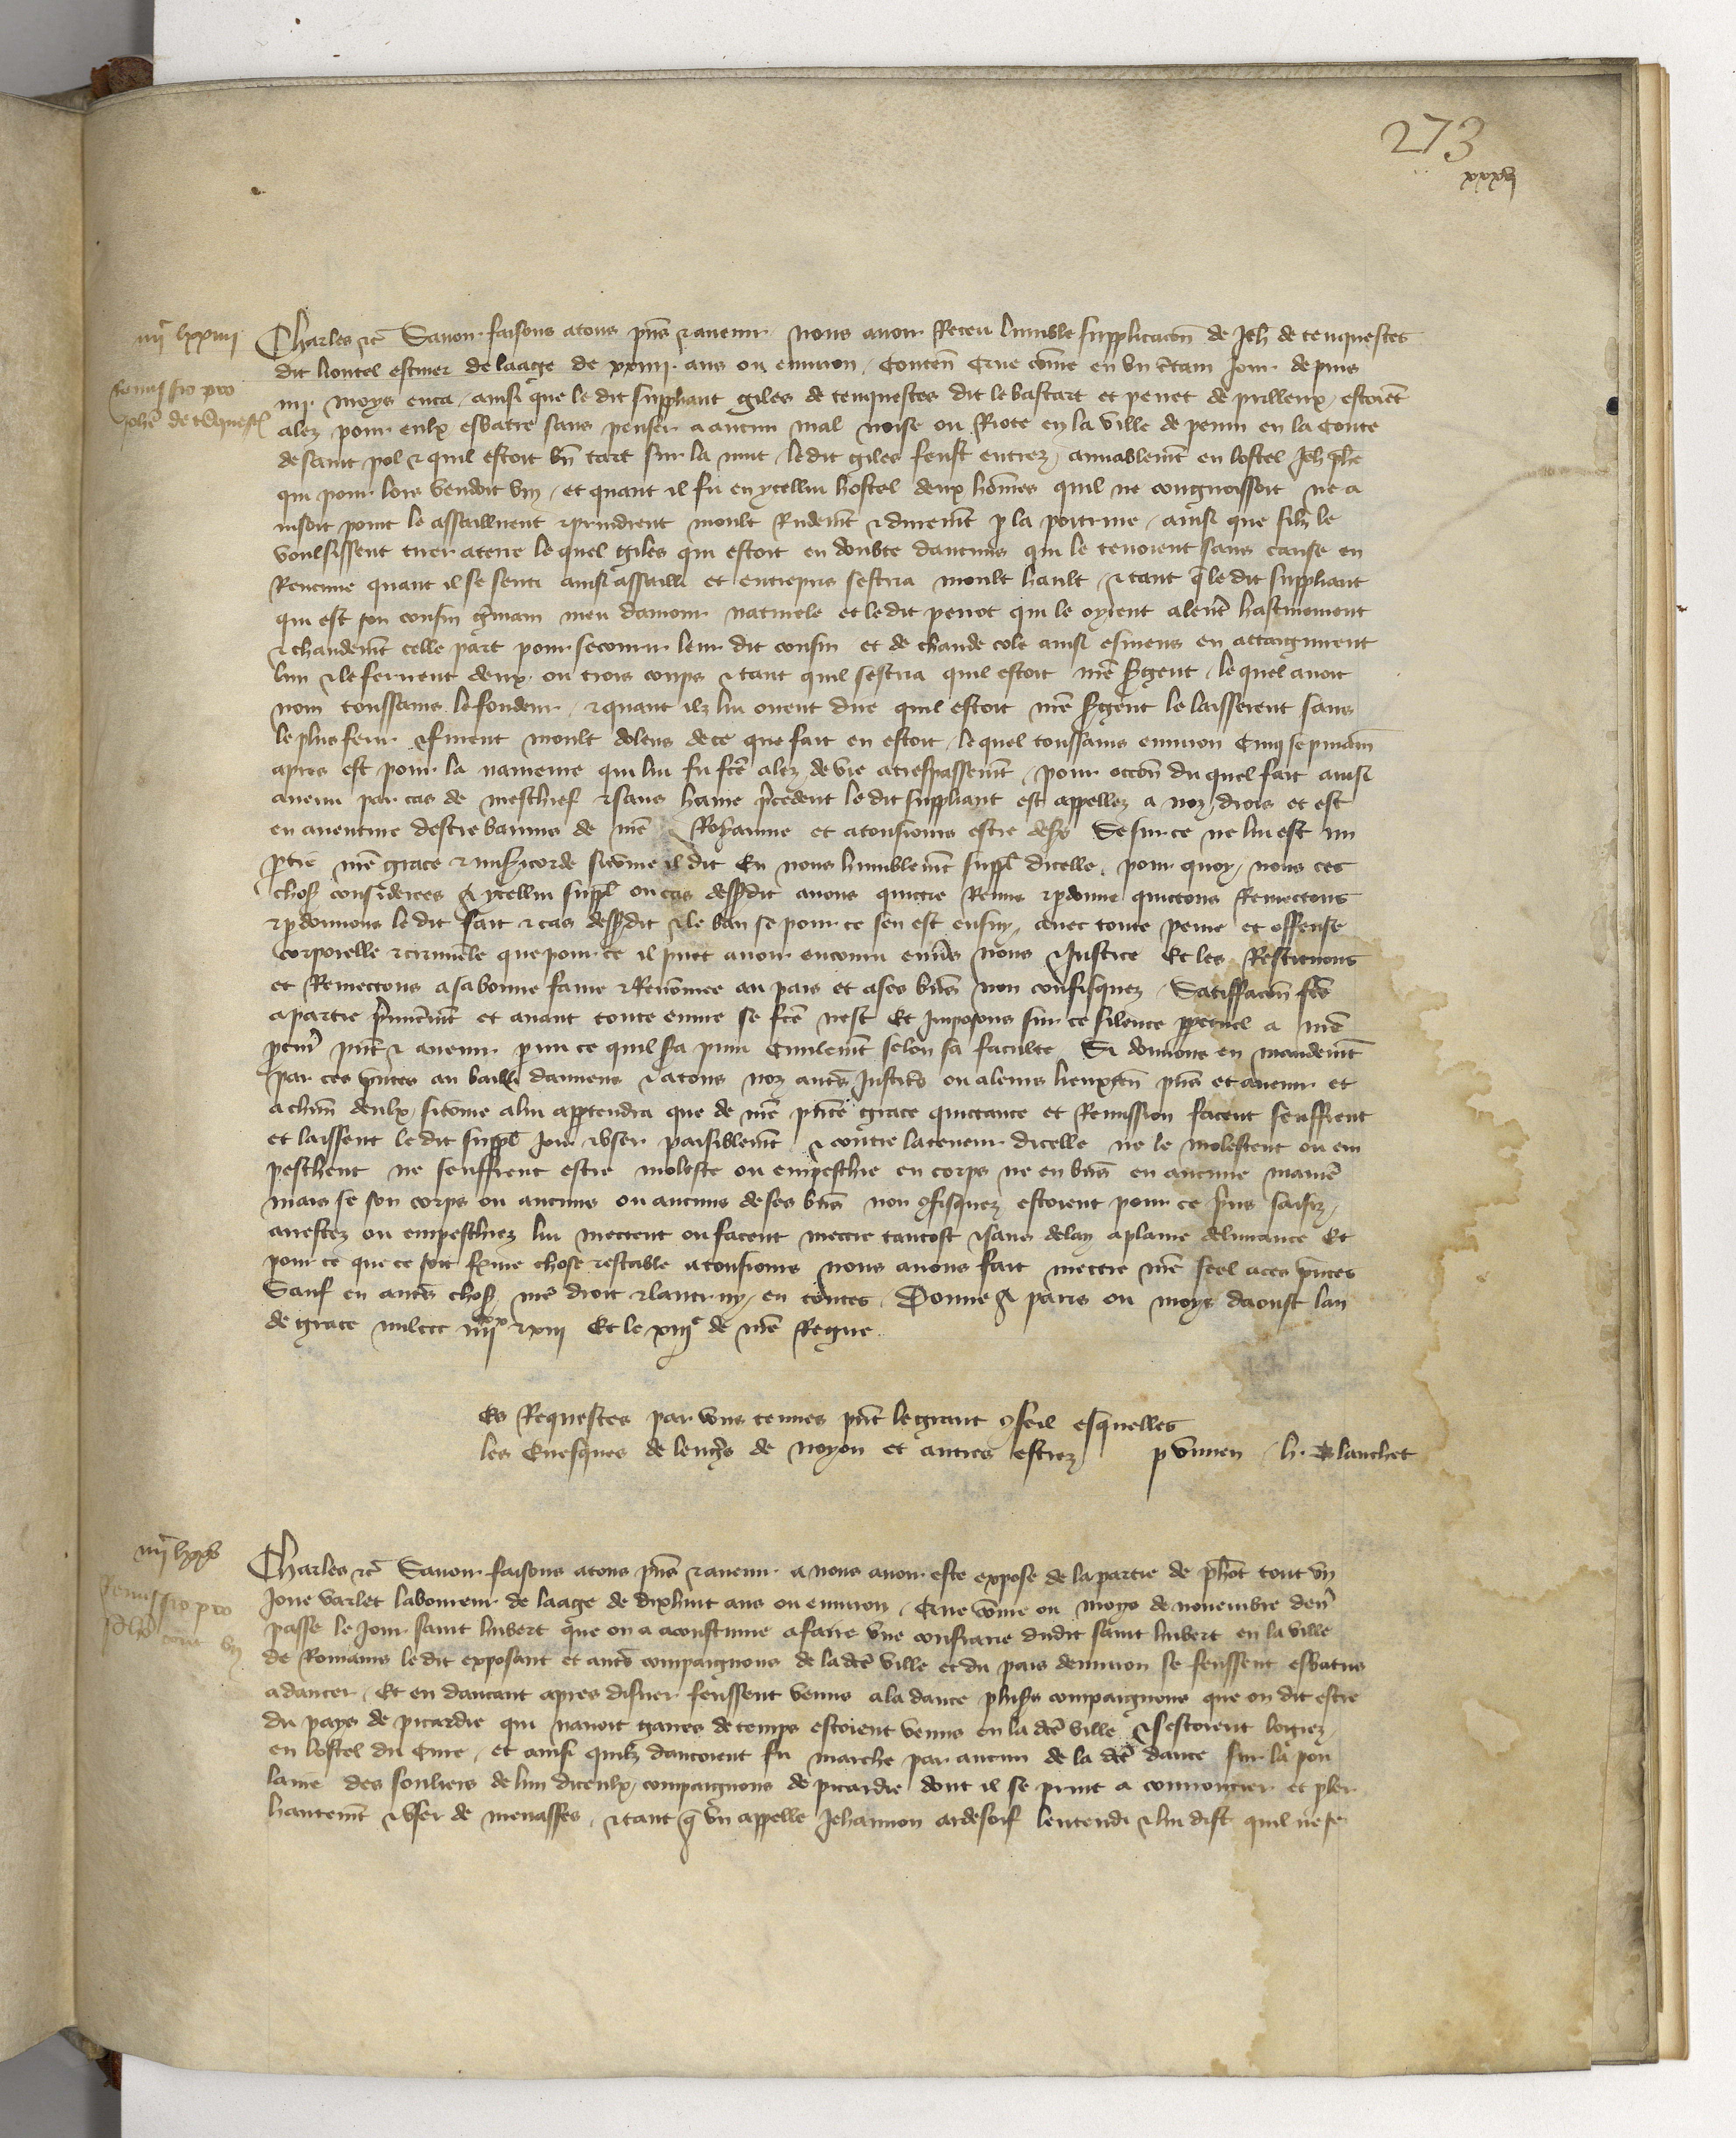 273
xxxv
iiijc lxxiiij
Charles etc Savoir faisons a tous pñs et avenir nous avoir Receu lumble supplicacõn de Jeh de tenquestes
dit hontel escuier de laage de xxiiij ans ou environ Conteñ Que cõme en un c̃tain Jour depuis
Remissio pro
Johẽ de t̃nquest̃
iij moys enca ainsi que le dit suppliant giles de tenquestes dit le bastart et pevet de prilleux estoiẽt
alez pour eulx esbatre sans penser a aucun mal noise ou Riote en la ville de penin en la Conte
de saint pol et quil estoit bñ tart sur la nuit le dit giles feust entrez amiablemt̃ en lostel Jeh
qui pour lors vendoit vin et quant il fu en ycellui hostel deux hõmes quil ne congnoissoit ne a
visoit point le assaillirent et prindrent moult Rudemt̃ et duremt̃ p la poitrine ainsi que silz le
voulsissent tuer a terre le quel giles qui estoit en doubte daucuns qui le tenoient sans cause en
Rencune quant il se senti ainsi assailli et entrepris sescria moult hault et tant q̃ le dit suppliant
qui est son cousin g̃main meu damour naturele et le dit pevot qui le oyrent alerẽt hastivement
et chaudemt̃ celle part pour secourir leur dit cousin et de chaude cole ainsi esmeus en attaignirent
lun et le ferirent deux ou trois coups et tant quil sescria quil estoit nr̃e s̃gent le quel avoit
nom toussains le fondeur et quant ilz lui oirent dire quil estoit nr̃e s̃gent le laisserent sans
le plus ferir et furent moult dolens de ce que fait en estoit le quel toussains environ Cinq sepmain̄
apres est pour la navreure qui lui fu fcẽ alez de vie a trespassemt̃ pour occõn du quel fait ainsi
avenu par cas de meschief et sans haine p̃cedent le dit suppliant est appellez a noz drois et est
en aventure destre bannis de nr̃e Royaume et a tousiours estre des̃s Se sur ce ne lui est im
p̃tie nr̃e grace et mis̃icorde si cõme il dit En nous humblemt̃ suppl̃ dicelle pour quoy nous ces
chos̃ considerees A ycellui suppl̃ ou cas dess̃dit avons quictie Remis et p̃donne quictons Remectons
et p̃donnons le dit fait et cas dess̃dit et le ban se pour ce sen est ensuy avec toute peine et offense
corporelle et crimiñele que pour ce il puet avoir encouru envs̃ nous et Justice Et les Restituons
et Remectons a sa bonne fame et Renõmee au pais et a ses biẽs non confisquez Satisfacõn fcẽ
a partie p̃mieremt̃ et avant toute euvre se fcẽ nest Et Imposons sur ce silence ppetuel a nr̃e
pcur̃ pñt et avenir p mi ce quil s̃a puni Civilemt̃ selon sa faculte Si donnons en mandemt̃
par ces pñtes au bailli damiens et a tous noz autr̃s Justiciẽs ou a leurs lieuxteñ pñs et avenir et
a chũn deulx si cõme a lui apptendra que de nr̃e pñte grace quictance et Remission facent seuffrent
et laissent le dit suppl̃ Joir et user paisiblemt̃ et contre la teneur dicelle ne le molestent ou em
peschent ne seuffrent estre moleste ou empeschie en corps ne en biẽs en aucune manieĩ
mais se son corps ou aucuns ou aucuns de ses biẽs non 9fisquez estoient pour ce prins saisiz
arrestez ou empeschiez lui mectent ou facent mectre tantost et sans delay a plaine delivrance Et
pour ce que ce soit ferme chose et estable a tousiours nous avons fait mectre nr̃e scel a ces pñtes
Sauf en autr̃s chos̃ nr̃e droit et lautruy en toutes Donne A paris ou moys daoust lan
de grace mil ccc iiijxx et xiij Et le xiije de nr̃e Regne
Es Requestes par vous tenues pñt le grant 9seil esquelles
les Evesques de lengr̃s de noyon et autres estiez p h. Blanchet
iiijc lxxv
Charles etc Savoir faisons a tous pñs et avenir a nous avoir este expose de la partie de phot̃ tout vñ
Remissio pro
Jone varlet laboureur de laage de dixhuit ans ou environ Que cõme ou moys de novembre deñr
passe le Jour saint hubert que on a acoustume a faire une confrarie dudit saint hubert en la ville
de Romains le dit exposant et autr̃s compaignons de la dcẽ ville et du pais denviron se feussent esbatus
a dancer Et en dancant apres disner feussent venus a la dance plus̃s compaignons que on dit estre
du pays de picardie qui navoit gaires de temps estoient venus en la dcẽ ville et sestoient logiez
en lostel du Cure et ainsi quilz dancoient fu marche par aucun de la dcẽ dance sur la pou
laine des souliers de lun diceulx compaignons de picardie dont il se print a courroucier et pler
hautemt̃ et user de menasses et tant q̃ vñ appelle Jehannon ardesoif lentendi et lui dist quil ne se